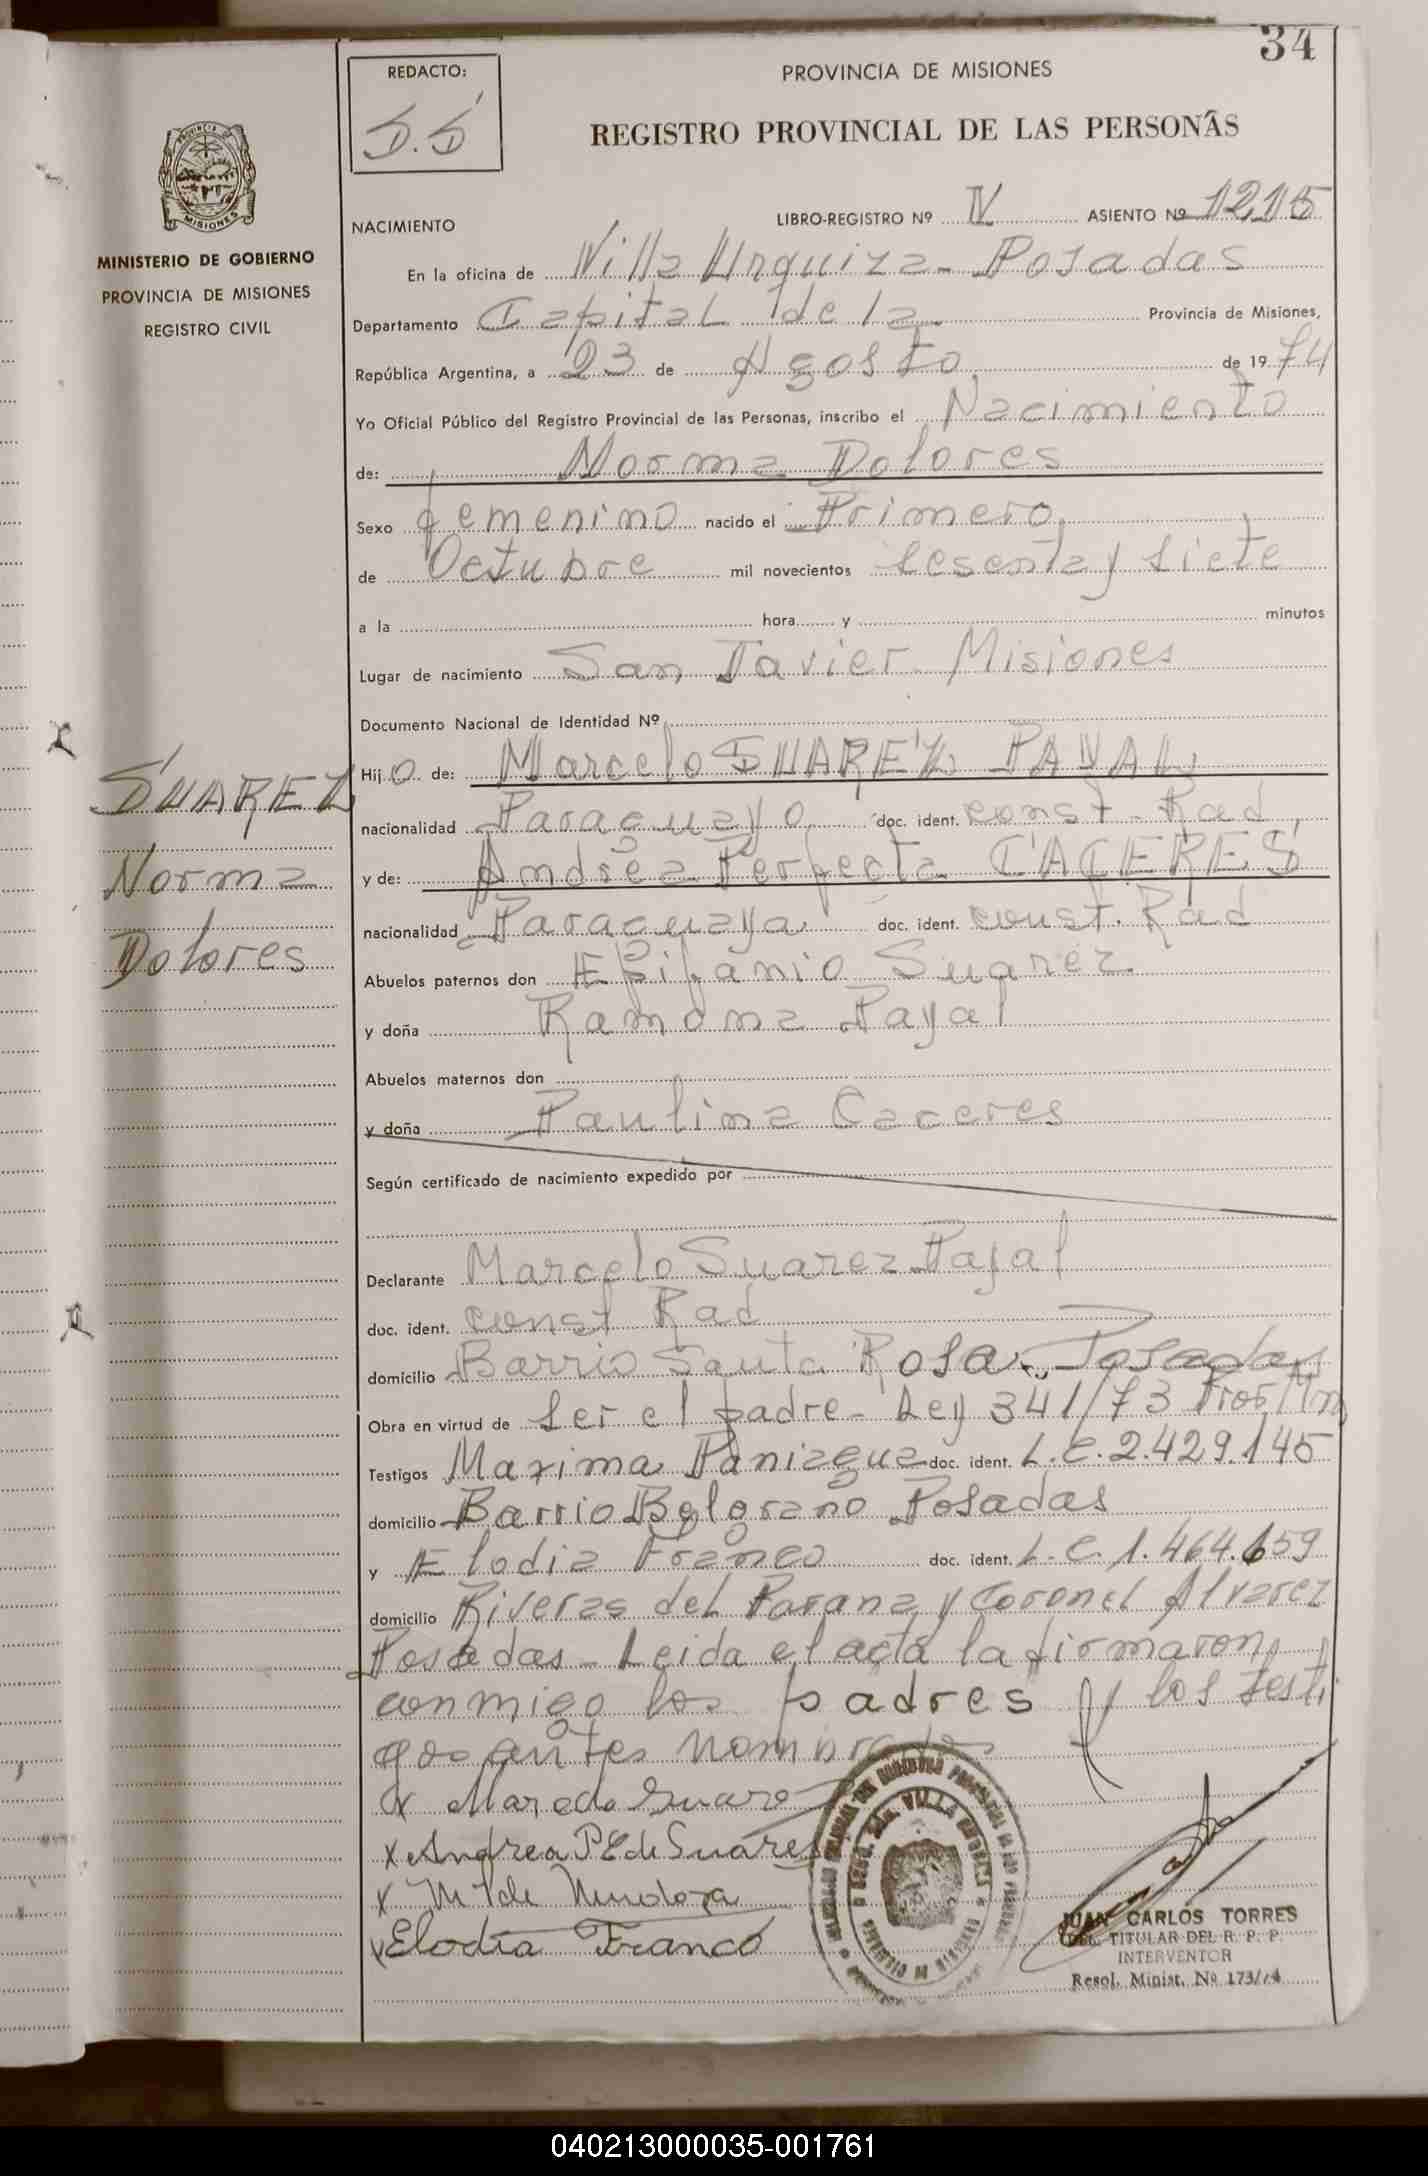 34
REDACTO:
S.S
PROVINCIA DE MISIONES
REGISTRO PROVINCIAL DE LAS PERSONAS
PROVINCIA DE
MISIONES
MINISTERIO DE GOBIERNO
PROVINCIA DE MISIONES
REGISTRO CIVIL
NACIMIENTO LIBRO-REGISTRO Nº IV ASIENTO Nº 1215
En la oficina de Villa Urquiza - Posadas
Departamento Capital de la Provincia de Misiones,
República Argentina, a 23 de Agosto de 1974
Yo Oficial Público del Registro Provincial de las Personas, inscribo el Nacimiento
de: Norma Dolores
Sexo femenino nacido el Primero
de Octubre mil novecientos sesenta y siete
a la hora y minutos
Lugar de nacimiento San Javier - Misiones
Documento Nacional de Identidad Nº
Hijo de: Marcelo SUAREZ PAYAL
nacionalidad Paraguayo doc. ident. const. Rad
y de: Andrea Perfecta CACERES
nacionalidad Paraguaya doc. ident. const. Rad
Abuelos paternos don Epifanio Suarez
y doña Ramona Payal
Abuelos maternos don
y doña Paulina Caceres
Según certificado de nacimiento expedido por
Declarante Marcelo Suarez Payal
doc. ident. const Rad
domicilio Barrio Santa Rosa. Posadas
Obra en virtud de ser el padre - Ley 341/73
Testigos Maxima Paniagua doc. ident. L.C. 2.429.145
domicilio Barrio Belgrano Posadas
y Elodia Franco doc. ident. L.C. 1.464.659
domicilio Riveras del Parana y Coronel Alvarez
Posadas - Leida el acta la firmaron
conmigo los padres y los testi
gos antes nombrados
x Marcelo Suarez
x Andrea P C de Suares
x M P de Mendoza
x Elodia Franco
SUAREZ
Norma
Dolores
JUAN CARLOS TORRES
TITULAR DEL R. P. P.
INTERVENTOR
Resol. Minist. Nº 173/74
040213000035-001761